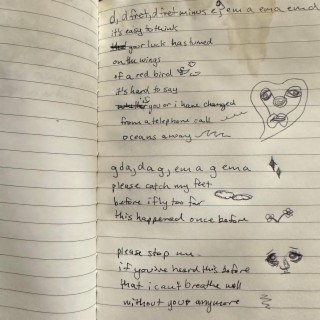 d, d fret, d fret minus e, g e m a e m a e m d
it's easy to think
your luck has turned
on the wings
of a red bird
it's hard to say
if you or i have changed
from a telephone call
oceans away
g d a, d a g, e m a g e m a
please catch my feet
before i fly too far
this happened once before
please stop me
if you've heard this before
that i can't breathe well
without your anymore